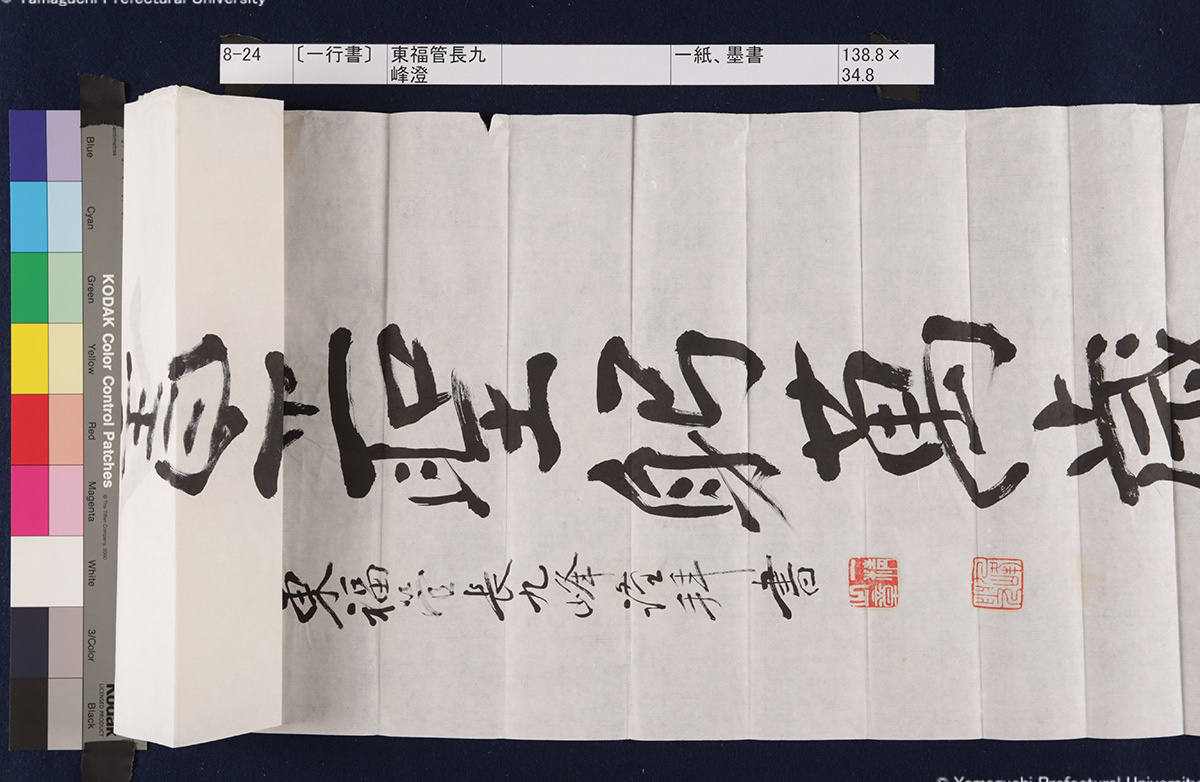 © Yamaguchi Prefectural University
8-24 〔一行書〕 東福管長九峰澄 一紙、墨書 138.8×34.8
聖躬萬歳
東福管長九峰澄拝書
KODAK Color Control Patches
© The Tiffen Company, 2000
Blue
Cyan
Green
Yellow
Red
Magenta
White
3/Color
Black
Kodak
LICENSED PRODUCT
© Yamaguchi Prefectural University